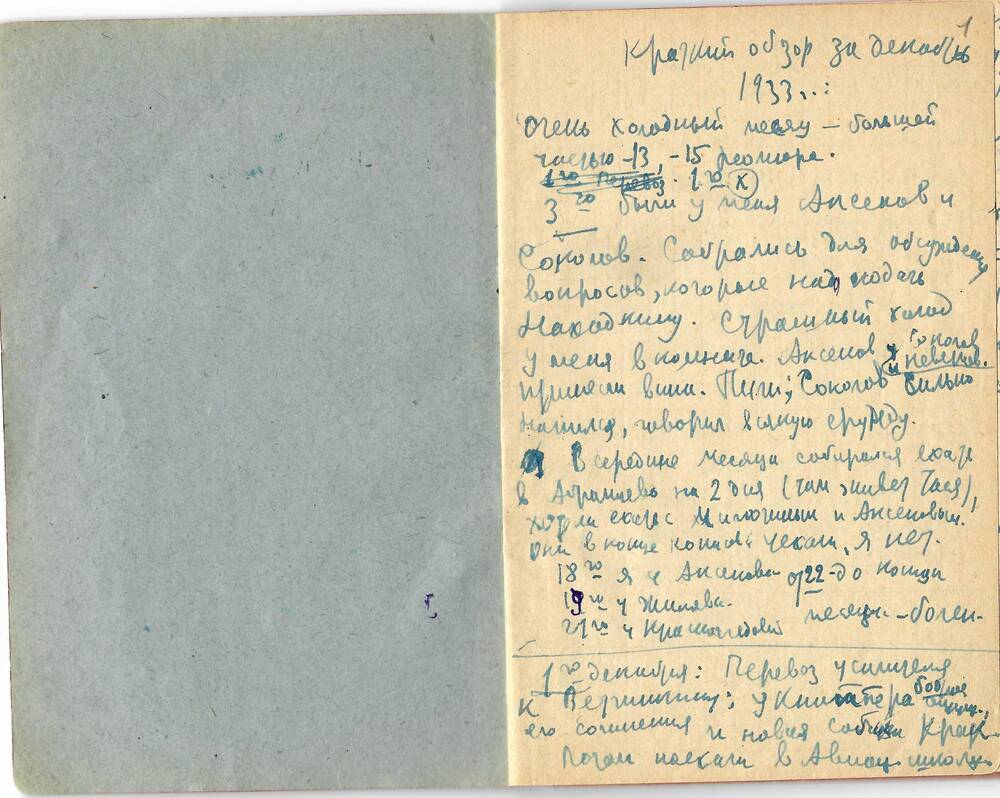 1
Краткий обзор за декабрь
1933 г.:
Очень холодный месяц – большей
частью -13, -15 реомюра.
1го Перевоз. 1го (X)
3го были у меня Аксенов и
Соколов. Собрались для обсуждения
вопросов, которые надо подать
Находкину. Страшный холод
у меня в комнате. Аксенов и Соколов
принесли вина. Пили; Соколов сильно
напился, говорил всякую ерунду.
В середине месяца собирался ехать
в Абрамцево на 2 дня (там живет Тася),
хотели ехать с и Аксеновым.
Они в конце концов уехали, я нет.
18го я у Аксенова от 22-до конца
19го у Жиляева.
21го у месяца – болен.
1го декабря: Перевоз усилителя
к у
его сочинения и новая
Потом поехали в Авиац. школу